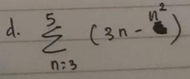 d. $\sum_{n=3}^{5} (3n - n^2)$